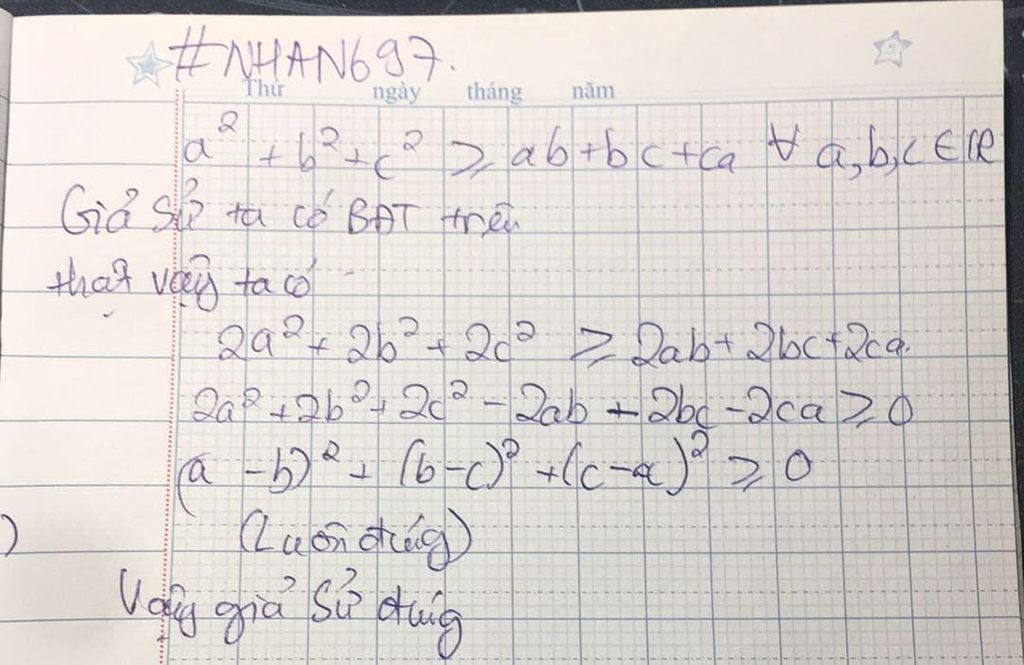 #NHAN697.
Thứ ngày tháng năm
a² + b² + c² ⩾ ab + bc + ca ∀ a, b, c ∈ ℝ
Giả sử ta có BĐT trên
thật vậy ta có
2a² + 2b² + 2c² ⩾ 2ab + 2bc + 2ca.
2a² + 2b² + 2c² - 2ab + 2bc - 2ca ⩾ 0
(a - b)² + (b - c)² + (c - a)² ⩾ 0
)
(Luôn đúng)
Vậy giả sử đúng